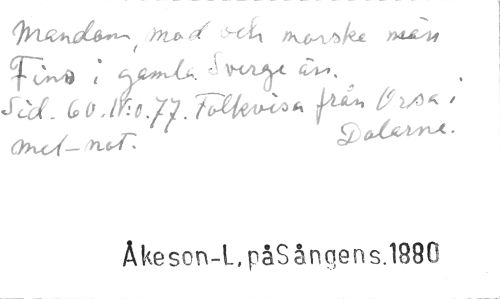 Mandom, mod och morske män
Fins i gamla Sverge än.
Sid. 60. N:o. 77. Folkvisa från Orsa i
mel-not. Dalarne.
Åkeson-L, påSångens.1880